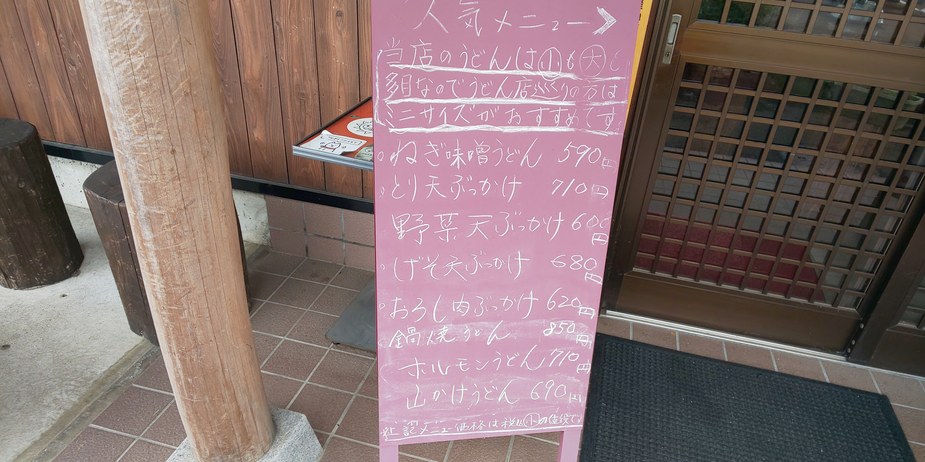 人気メニュー
当店のうどんは小も大も
多目なのでうどん店巡りの方は
ミニサイズがおすすめです
ねぎ味噌うどん 590円
とり天ぶっかけ 710円
野菜天ぶっかけ 600円
げそ天ぶっかけ 680円
おろし肉ぶっかけ 620円
鍋焼うどん 850円
ホルモンうどん 710円
山かけうどん 690円
上記メニュー価格は税込小の値段です